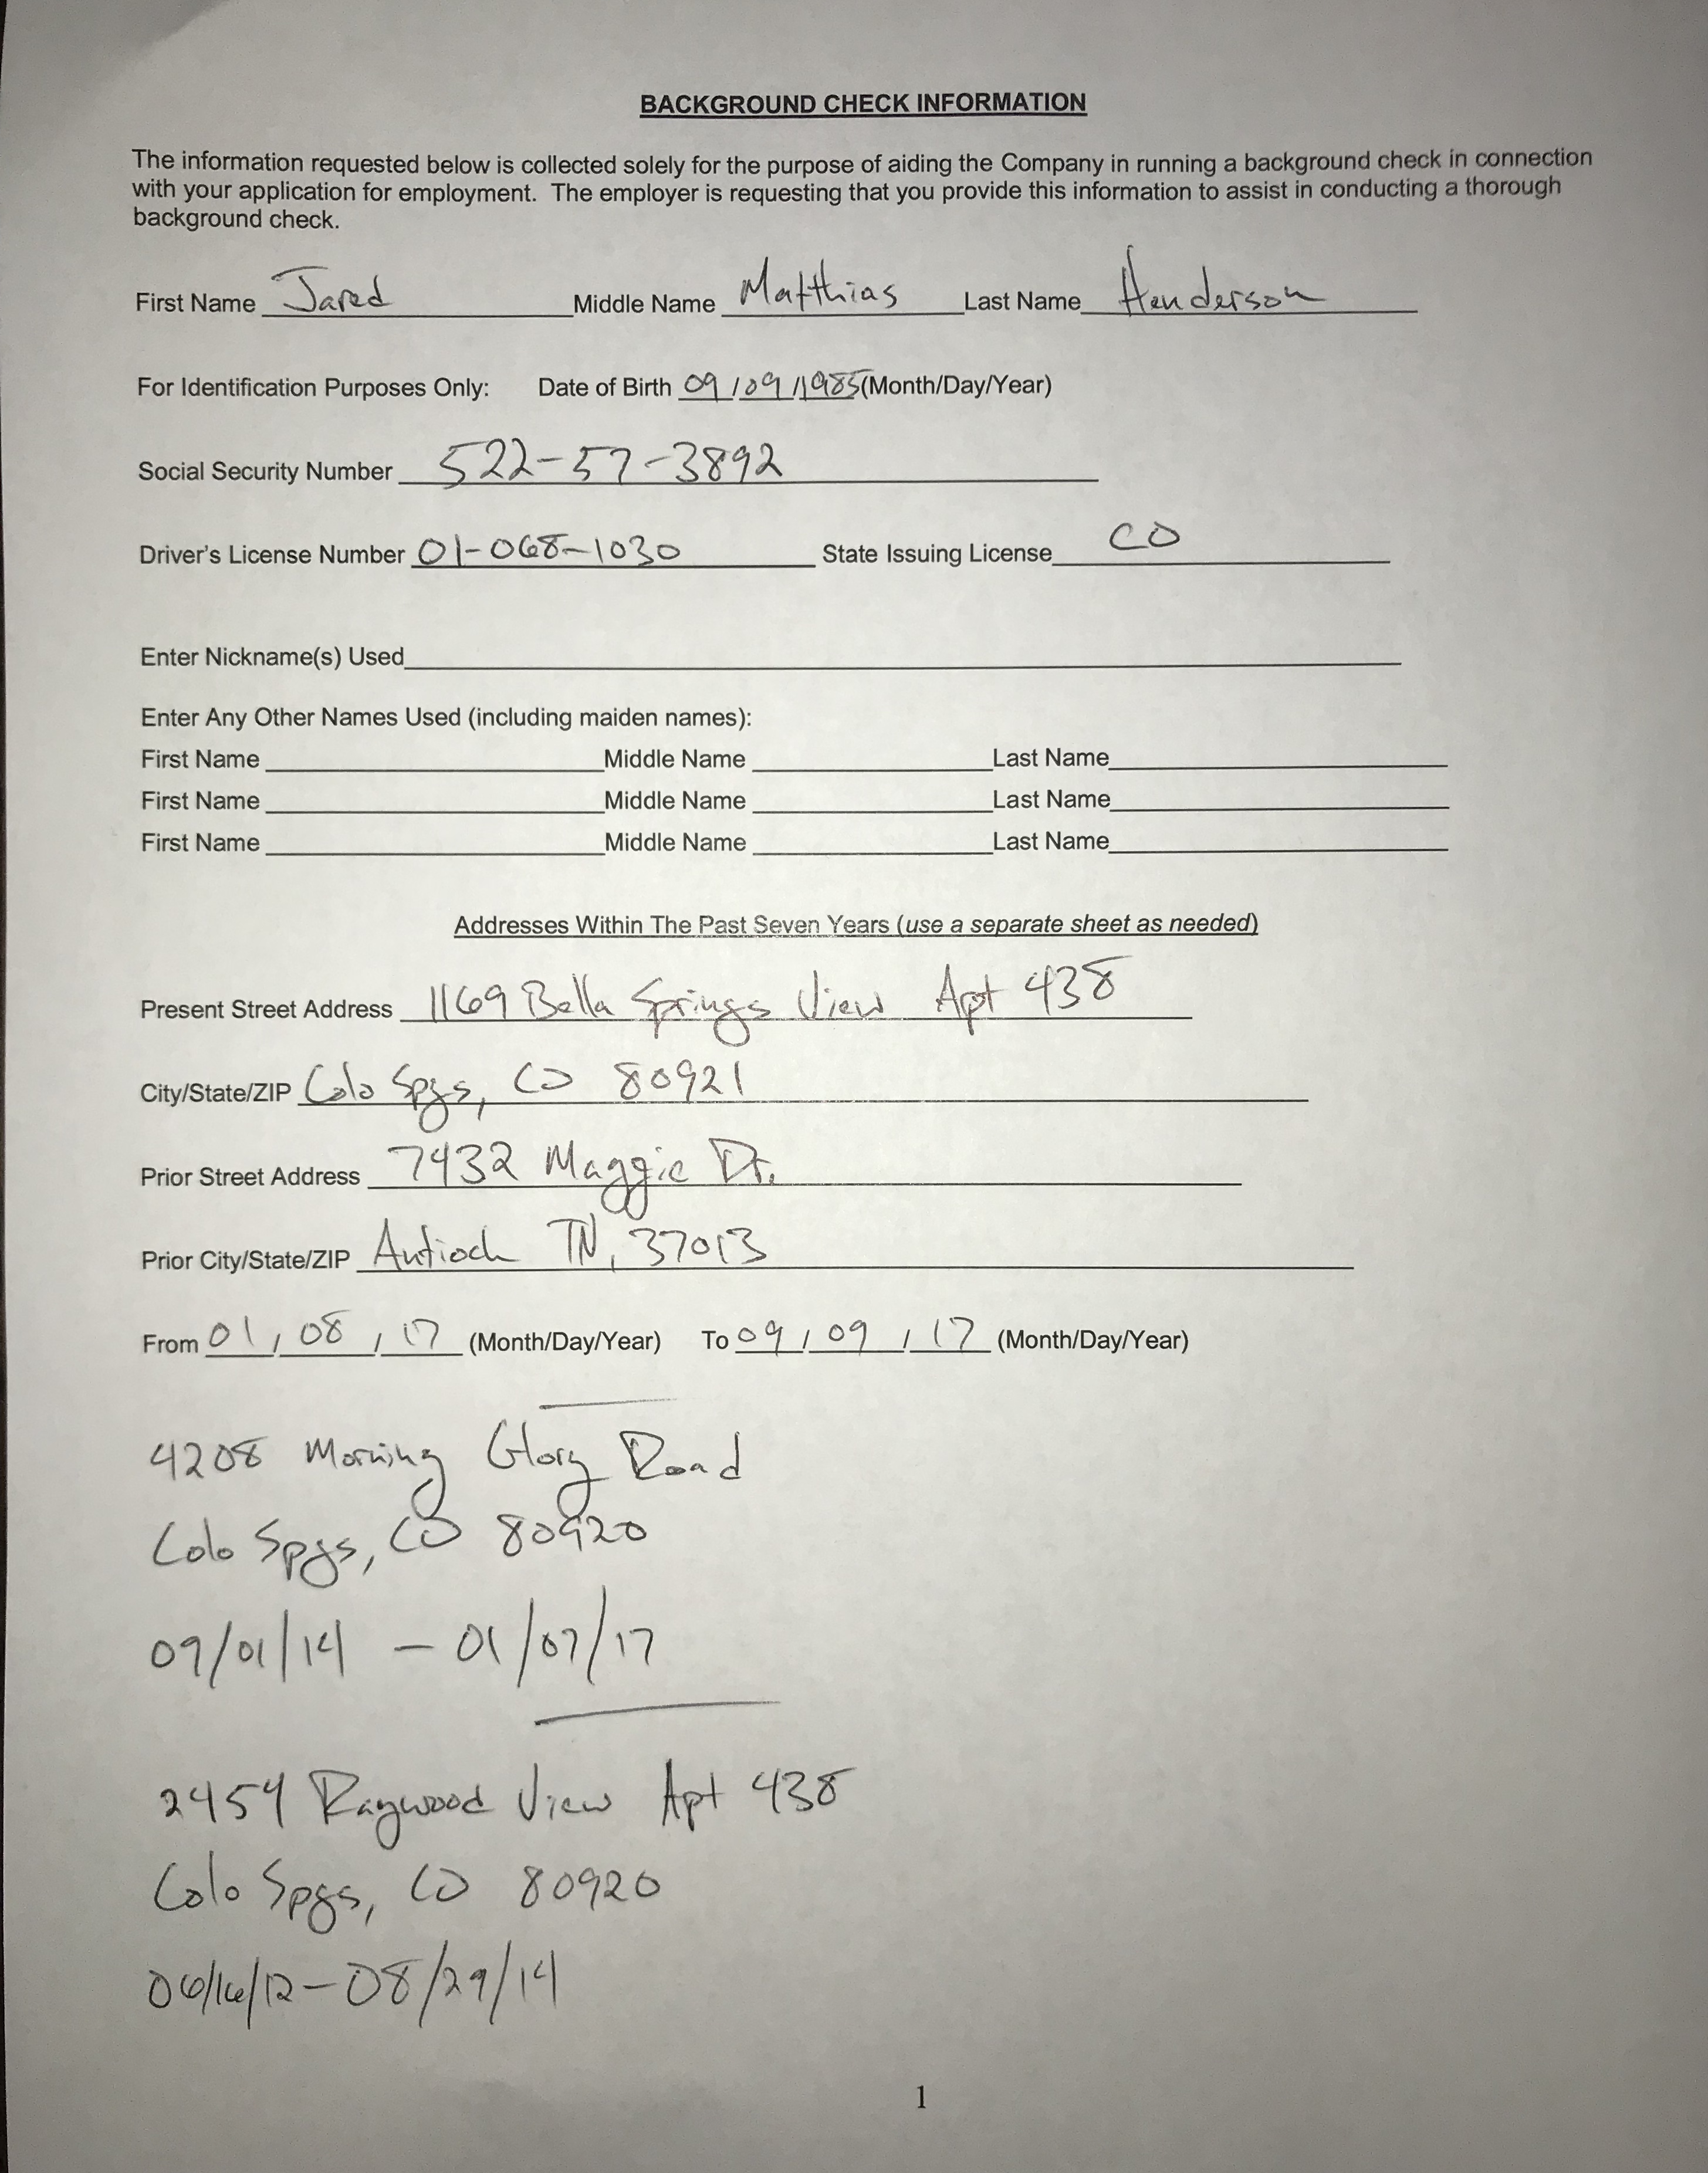 BACKGROUND CHECK INFORMATION
The information requested below is collected solely for the purpose of aiding the Company in running a background check in connection
with your application for employment. The employer is requesting that you provide this information to assist in conducting a thorough
background check.
First Name Jared Middle Name Matthias Last Name Henderson
For Identification Purposes Only: Date of Birth 09/09/1985 (Month/Day/Year)
Social Security Number 522-57-3892
Driver's License Number 01-068-1030 State Issuing License CO
Enter Nickname(s) Used
Enter Any Other Names Used (including maiden names):
First Name Middle Name Last Name
First Name Middle Name Last Name
First Name Middle Name Last Name
Addresses Within The Past Seven Years (use a separate sheet as needed)
Present Street Address 1169 Bella Springs View Apt 438
City/State/ZIP Colo Spgs, CO 80921
Prior Street Address 7432 Maggie Dr.
Prior City/State/ZIP Antioch TN, 37013
From 01/08/17 (Month/Day/Year) To 09/09/17 (Month/Day/Year)
4208 Morning Glory Road
Colo Spgs, CO 80920
09/01/14 - 01/07/17
2454 Raywood View Apt 438
Colo Spgs, CO 80920
06/16/12-08/29/14
1